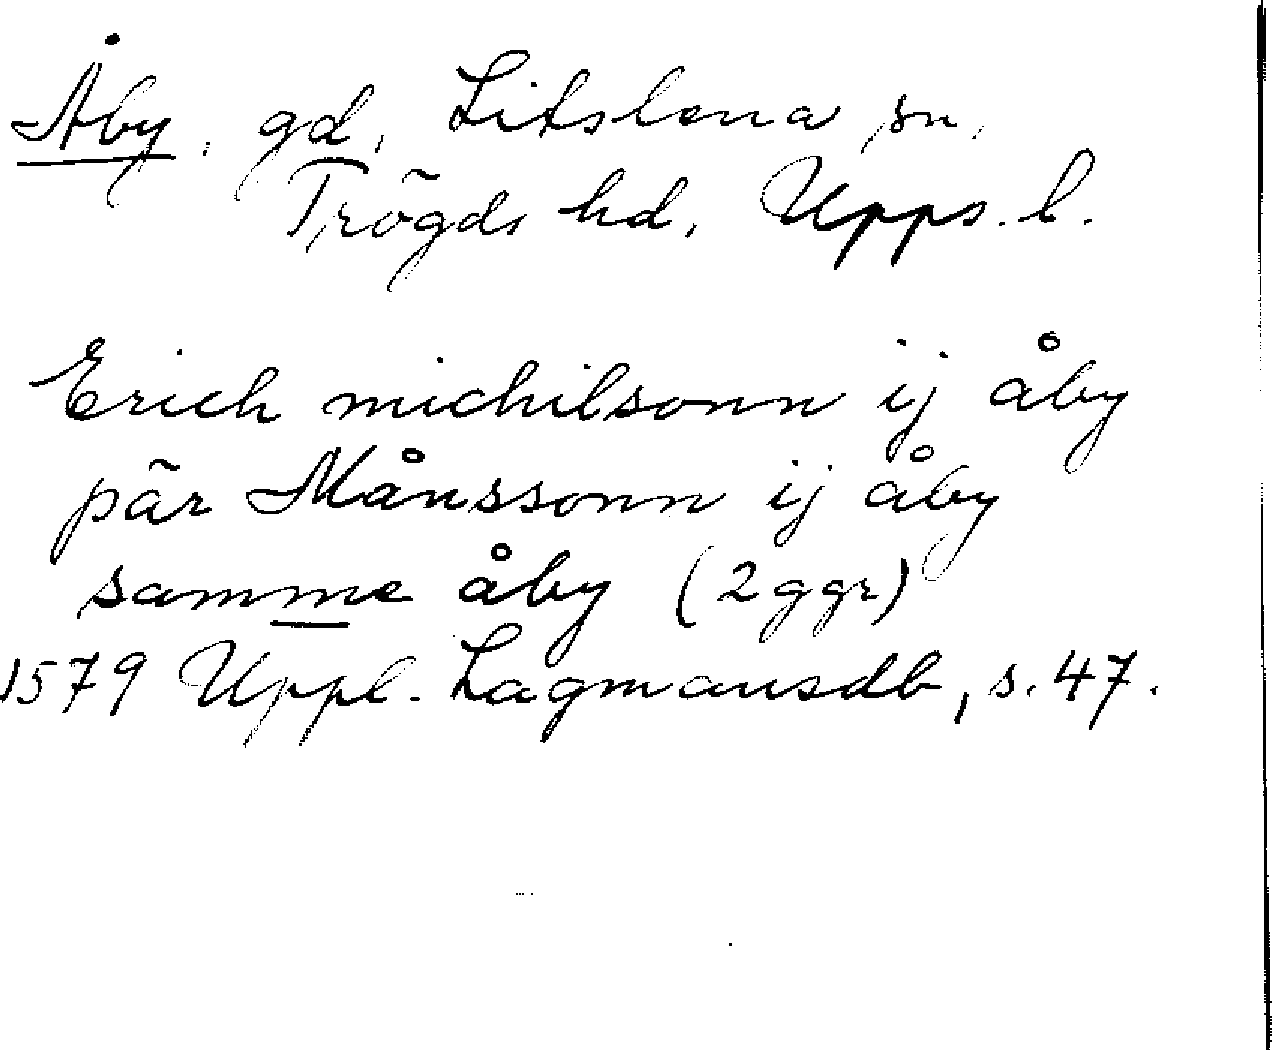 Åby, gd, Litslena sn,
Trögds hd, Upps. l.
Erich michilsonn ij åby
pär Månssonn ij åby
samme åby (2 ggr)
1579 Uppl. Lagmansdb, s. 47.